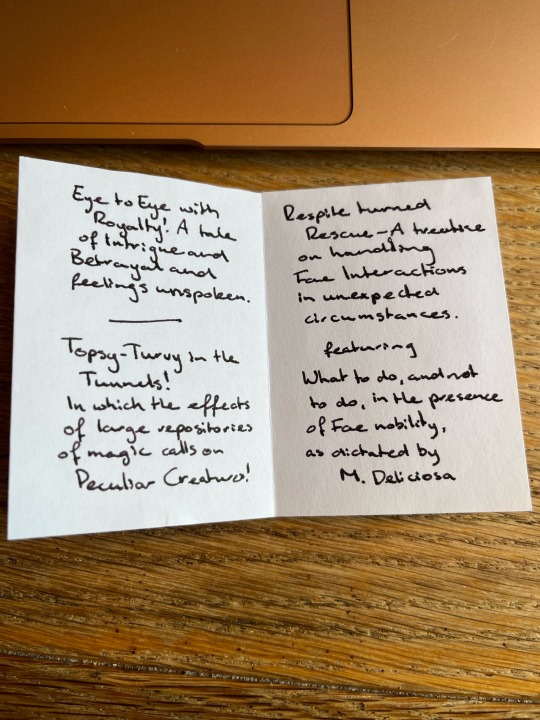 Eye to Eye with
Royalty! A tale
of Intrigue and
Betrayal and
feelings unspoken.
Topsy-Turvy in the
Tunnels!
In which the effects
of large repositories
of magic calls on
Peculiar Creatures!
Respite turned
Rescue - A treatise
on handling
Fae Interactions
in unexpected
circumstances.
featuring
What to do, and not
to do, in the presence
of Fae nobility,
as dictated by
M. Deliciosa